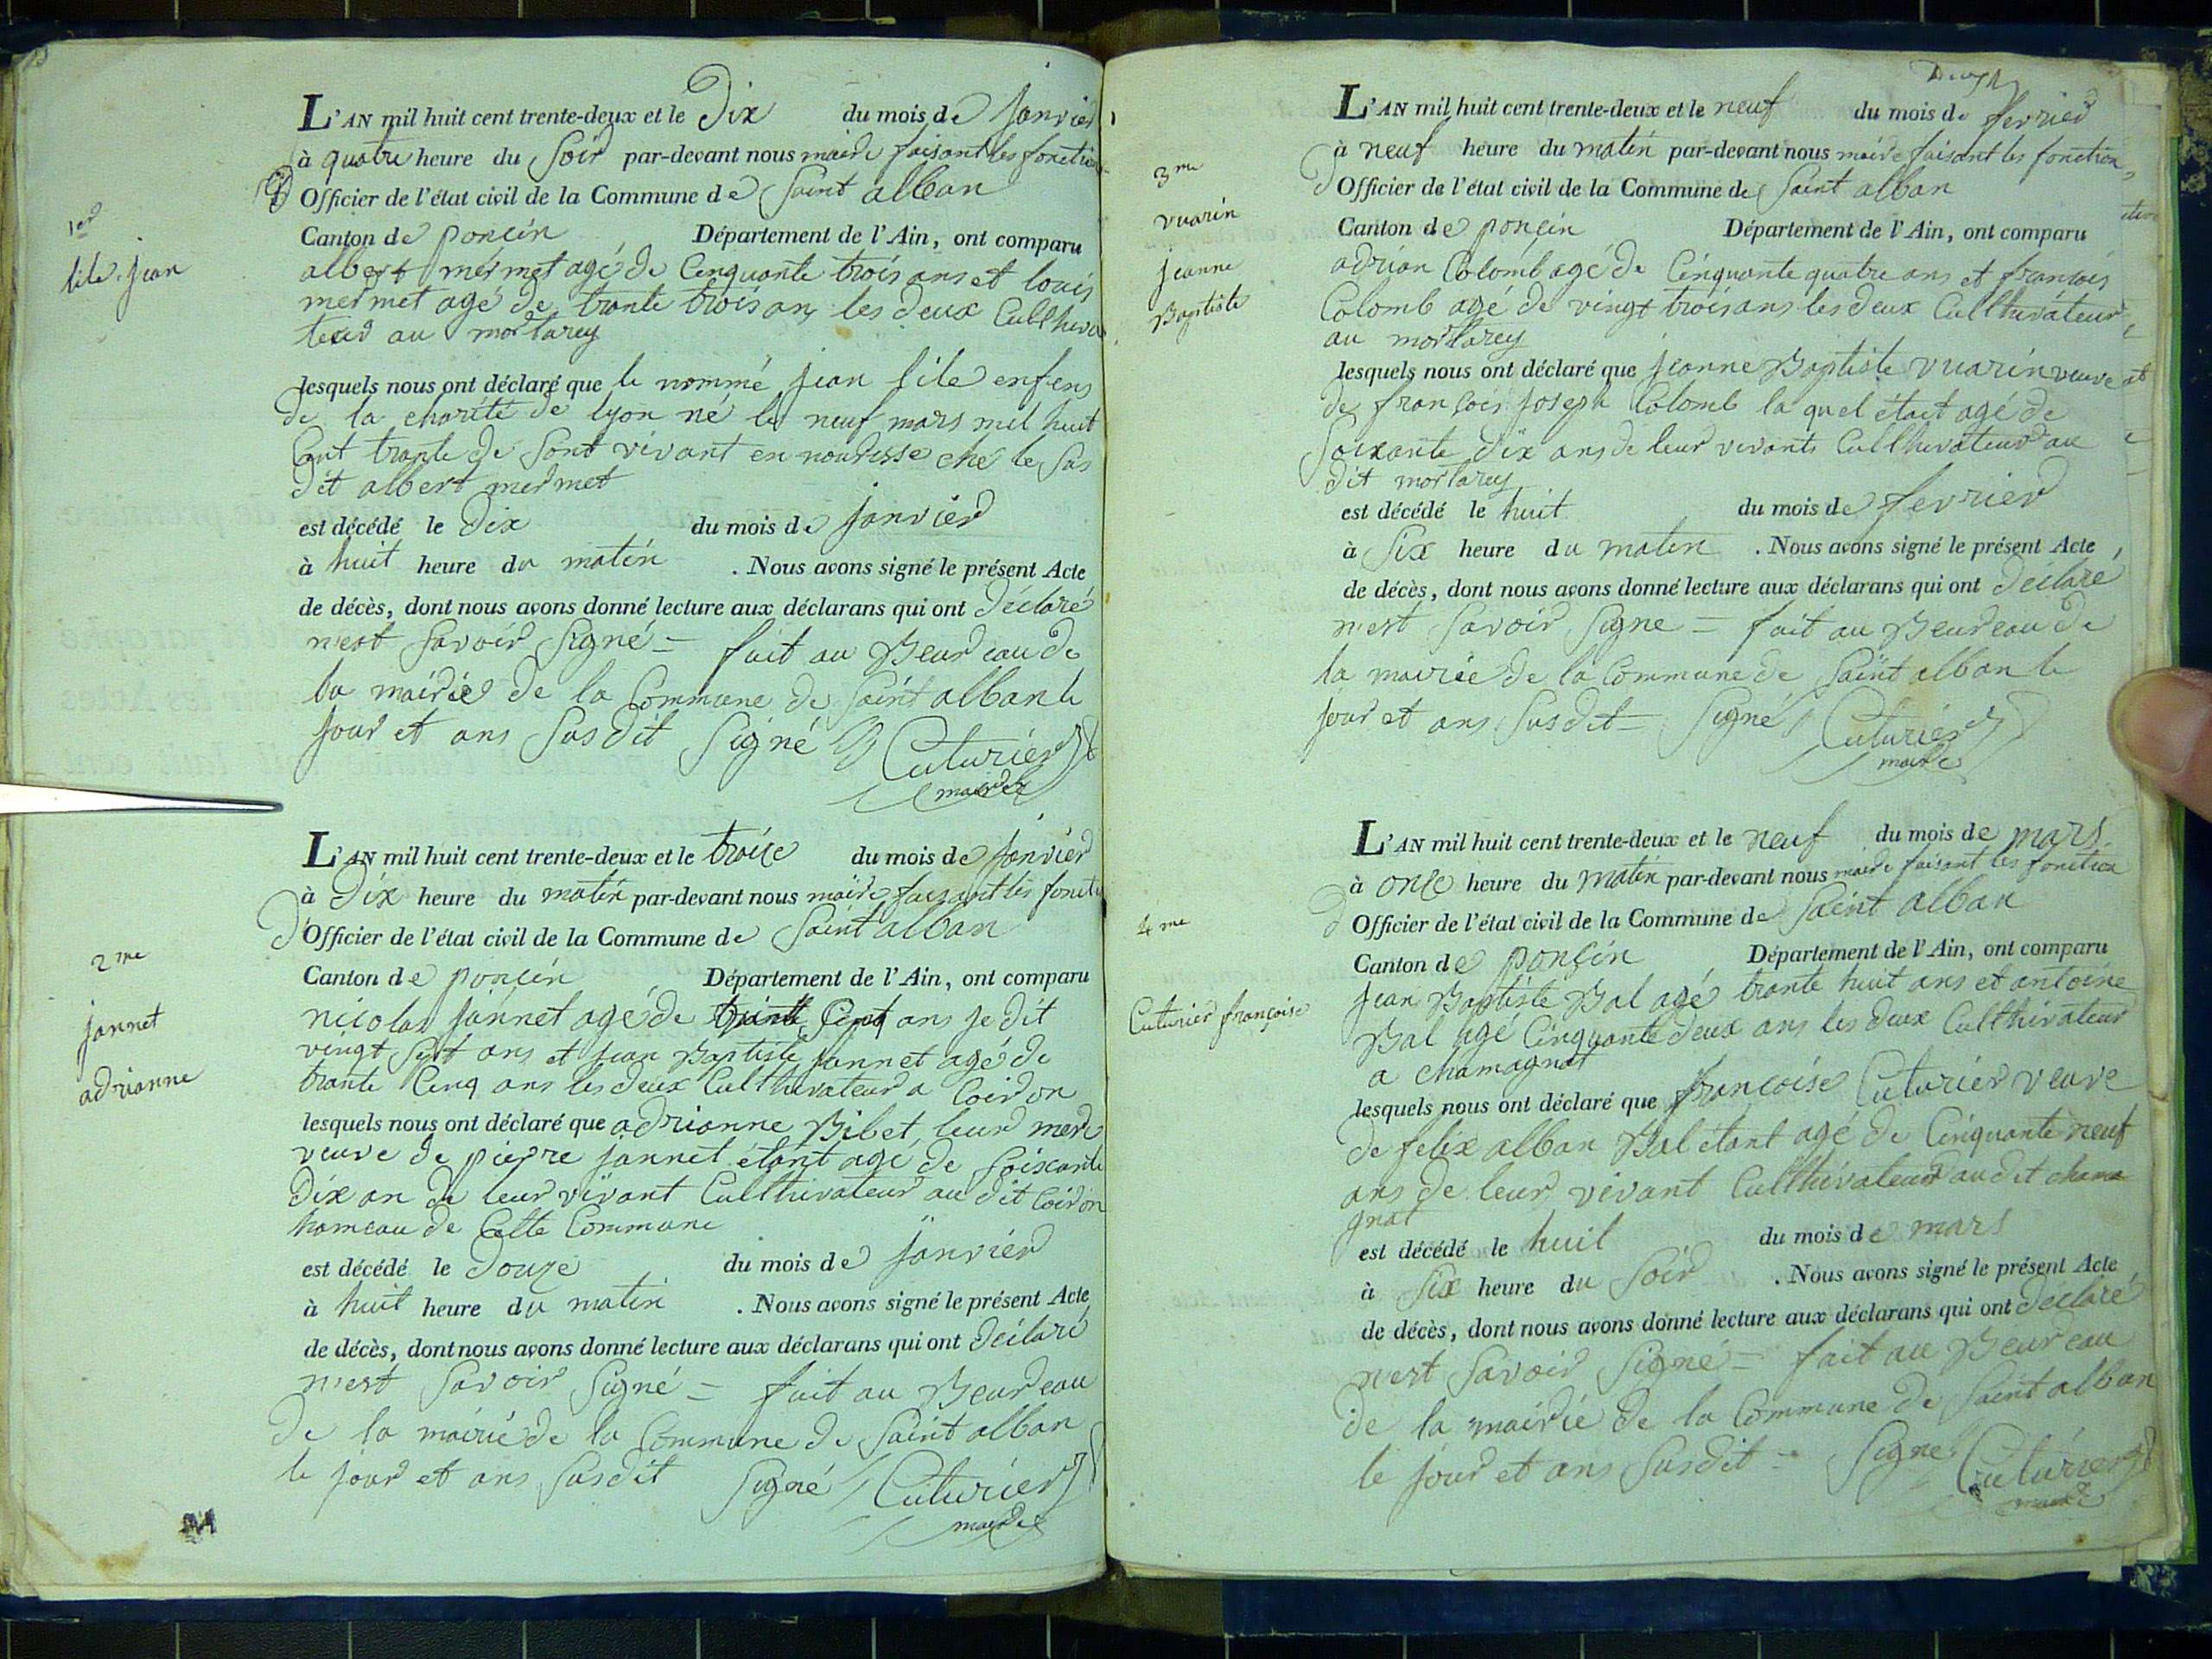 L'AN mil huit cent trente-deux et le Dix du mois de janvier
à quatre heure du Soir par-devant nous maire faisant les fonction
D Officier de l'état civil de la Commune de Saint alban
Canton de poncin Département de l'Ain, ont comparu
albert mermet agé de Cinquante trois ans et louis
mermet agé de trante trois ans les deux Culthiva
teur au mortarey
lesquels nous ont déclaré que le nommé jean file enfens
de la charité de lyon né le neuf mars mil huit
Cent trante de Sont vivant en nourisse ché le Sus
dit albert mermet
est décédé le Dix du mois de janvier
à huit heure du matin . Nous avons signé le présent Acte
de décès, dont nous avons donné lecture aux déclarans qui ont Déclaré
n'est Savoir Signé = fait au Beureau de
la mairie de la Commune de Saint alban le
jour et ans Susdit Signé Cuturier
maire
1er
file jean
L'AN mil huit cent trente-deux et le troize du mois de janvier
à Dix heure du matin par-devant nous maire faisant les foncti
D'Officier de l'état civil de la Commune de Saint alban
Canton de poncin Département de l'Ain, ont comparu
nicolas jannet agé de trante Sept ans je dit
vingt Sept ans et jean Baptiste jannet agé de
trante Cinq ans les deux Culthivateur a Coiron
lesquels nous ont déclaré que adrianne Bibet leur mere
veuve de pierre jannet étant agé de Soixante
Dix an de leur vivant Culthivateur au dit Coiron
hameau de Cette Commune
est décédé le Douze du mois de janvier
à huit heure du matin . Nous avons signé le présent Acte
de décès, dont nous avons donné lecture aux déclarans qui ont Déclaré
n'est Savoir Signé = fait au Beureau
de la mairie de la Commune de Saint alban
le jour et ans Susdit Signé Cuturier
maire
2me
jannet
adrianne
L'AN mil huit cent trente-deux et le neuf du mois de fevrier
à neuf heure du matin par-devant nous maire faisant les fonction
D Officier de l'état civil de la Commune de Saint alban
Canton de poncin Département de l'Ain, ont comparu
adrian Colomb agé de Cinquante quatre ans et francois
Colomb agé de vingt trois ans les deux Culthivateur
au mortarey
lesquels nous ont déclaré que jeanne Baptiste vuarin veuve
de françois joseph Colomb la quel était agé de
Soixante Dix ans de leur vivants Culthivateur au
dit mortarey
est décédé le huit du mois de fevrier
à Six heure du matin . Nous avons signé le présent Acte
de décès, dont nous avons donné lecture aux déclarans qui ont Déclaré
n'est Savoir Signe = fait au Beureau de
la mairie de la Commune de Saint alban le
jour et ans Susdit = Signé Cuturier
maire
3me
vuarin
jeanne
Baptiste
L'AN mil huit cent trente-deux et le neuf du mois de mars
à onze heure du matin par-devant nous maire faisant les fonction
D Officier de l'état civil de la Commune de Saint alban
Canton de poncin Département de l'Ain, ont comparu
jean Baptiste Bal agé trante huit ans et antoine
Bal agé Cinquante deux ans les deux Culthivateur
a chamagnat
lesquels nous ont déclaré que françoise Cuturier veuve
de felix alban Bal étant agé de Cinquante neuf
ans de leur vivant Culthivateur au dit chama
gnat
est décédé le huit du mois de mars
à Six heure du Soir . Nous avons signé le présent Acte
de décès, dont nous avons donné lecture aux déclarans qui ont Déclaré
n'est Savoir Signé = fait au Beureau
de la mairie de la Commune de Saint alban
le jour et ans Susdit = Signé Cuturier
maire
4me
Cuturier françoise